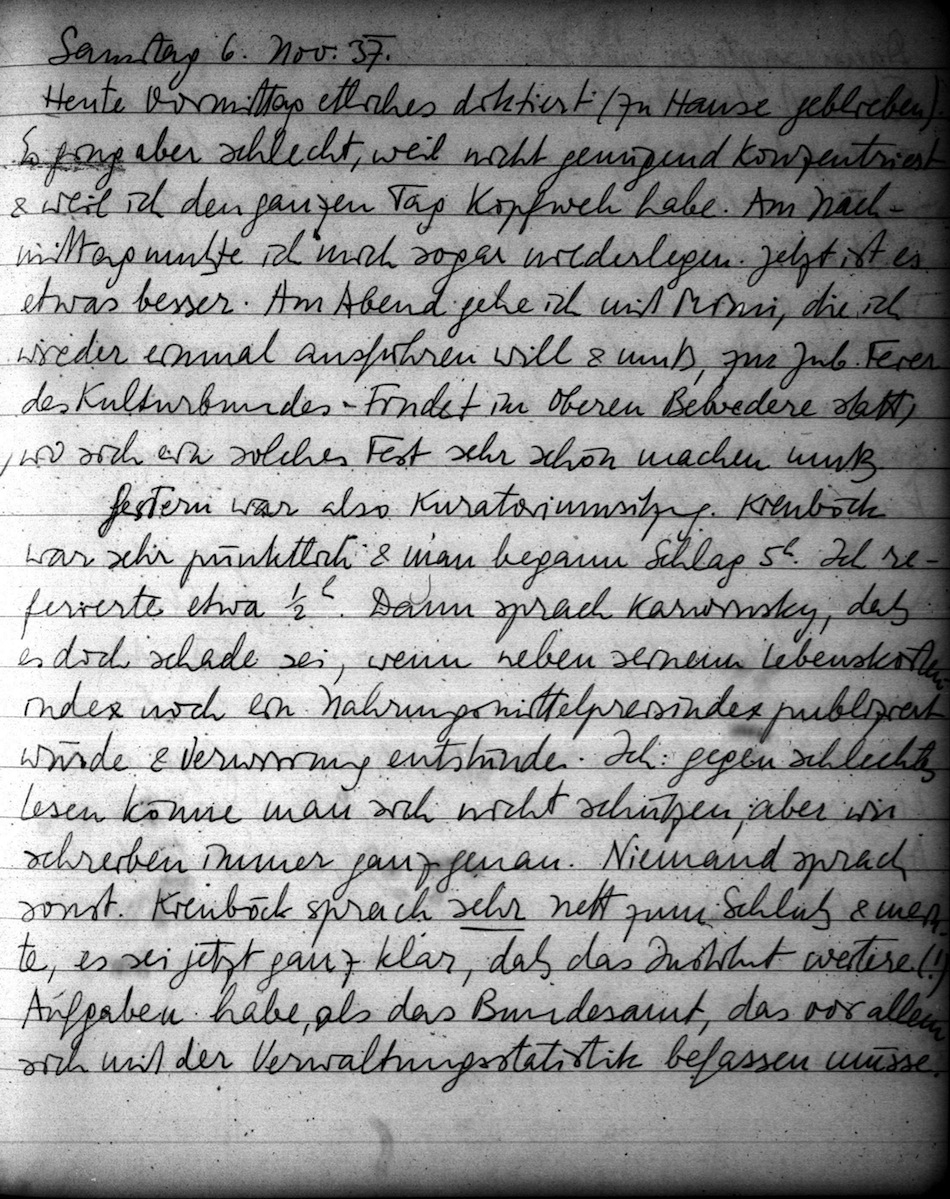 Samstag 6. Nov. 37.
Heute Vormittag etliches diktiert (zu Hause geblieben).
Es ging aber schlecht, weil nicht genügend konzentriert
& weil ich den ganzen Tag Kopfweh habe. Am Nach-
mittag mußte ich mich sogar niederlegen. Jetzt ist es
etwas besser. Am Abend gehe ich mit Mimi, die ich
wieder einmal ausführen will & muß, zur Jub. Feier
des Kulturbundes - Findet im Oberen Belvedere statt,
wo sich ein solches Fest sehr schön machen muß.
Gestern war also Kuratoriumsitzg. Kienböck
war sehr pünktlich & man begann Schlag 5h. Ich re-
ferierte etwa ½h. Dann sprach Karminsky, daß
es doch schade sei, wenn neben seinem Lebenskosten
index noch ein Nahrungsmittelpreisindex publiziert
würde & Verwirrung entstünde. Ich: gegen schlechtes
Lesen könne man sich nicht schützen, aber wir
schreiben immer ganz genau. Niemand sprach
sonst. Kienböck sprach sehr nett zum Schluß & mein-
te, es sei jetzt ganz klar, daß das Institut weitere (!)
Aufgaben habe, als das Bundesamt, das vor allem
sich mit der Verwaltungsstatistik befassen müsse.